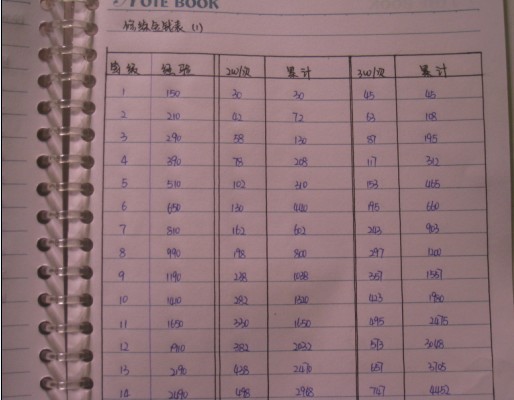 NOTE BOOK
(1)
等级 经验 2W/次 累计 3W/次 累计
1 150 30 30 45 45
2 210 42 72 63 108
3 290 58 130 87 195
4 390 78 208 117 312
5 510 102 310 153 465
6 650 130 440 195 660
7 810 162 602 243 903
8 990 198 800 297 1200
9 1190 238 1038 357 1557
10 1410 282 1320 423 1980
11 1650 330 1650 495 2475
12 1910 382 2032 573 3048
13 2190 438 2470 657 3705
14 2490 498 2968 747 4452